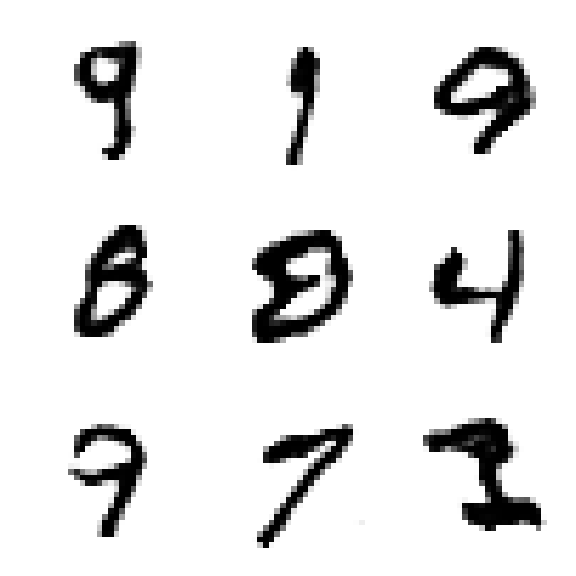 9 1 9
8 8 4
9 7 2